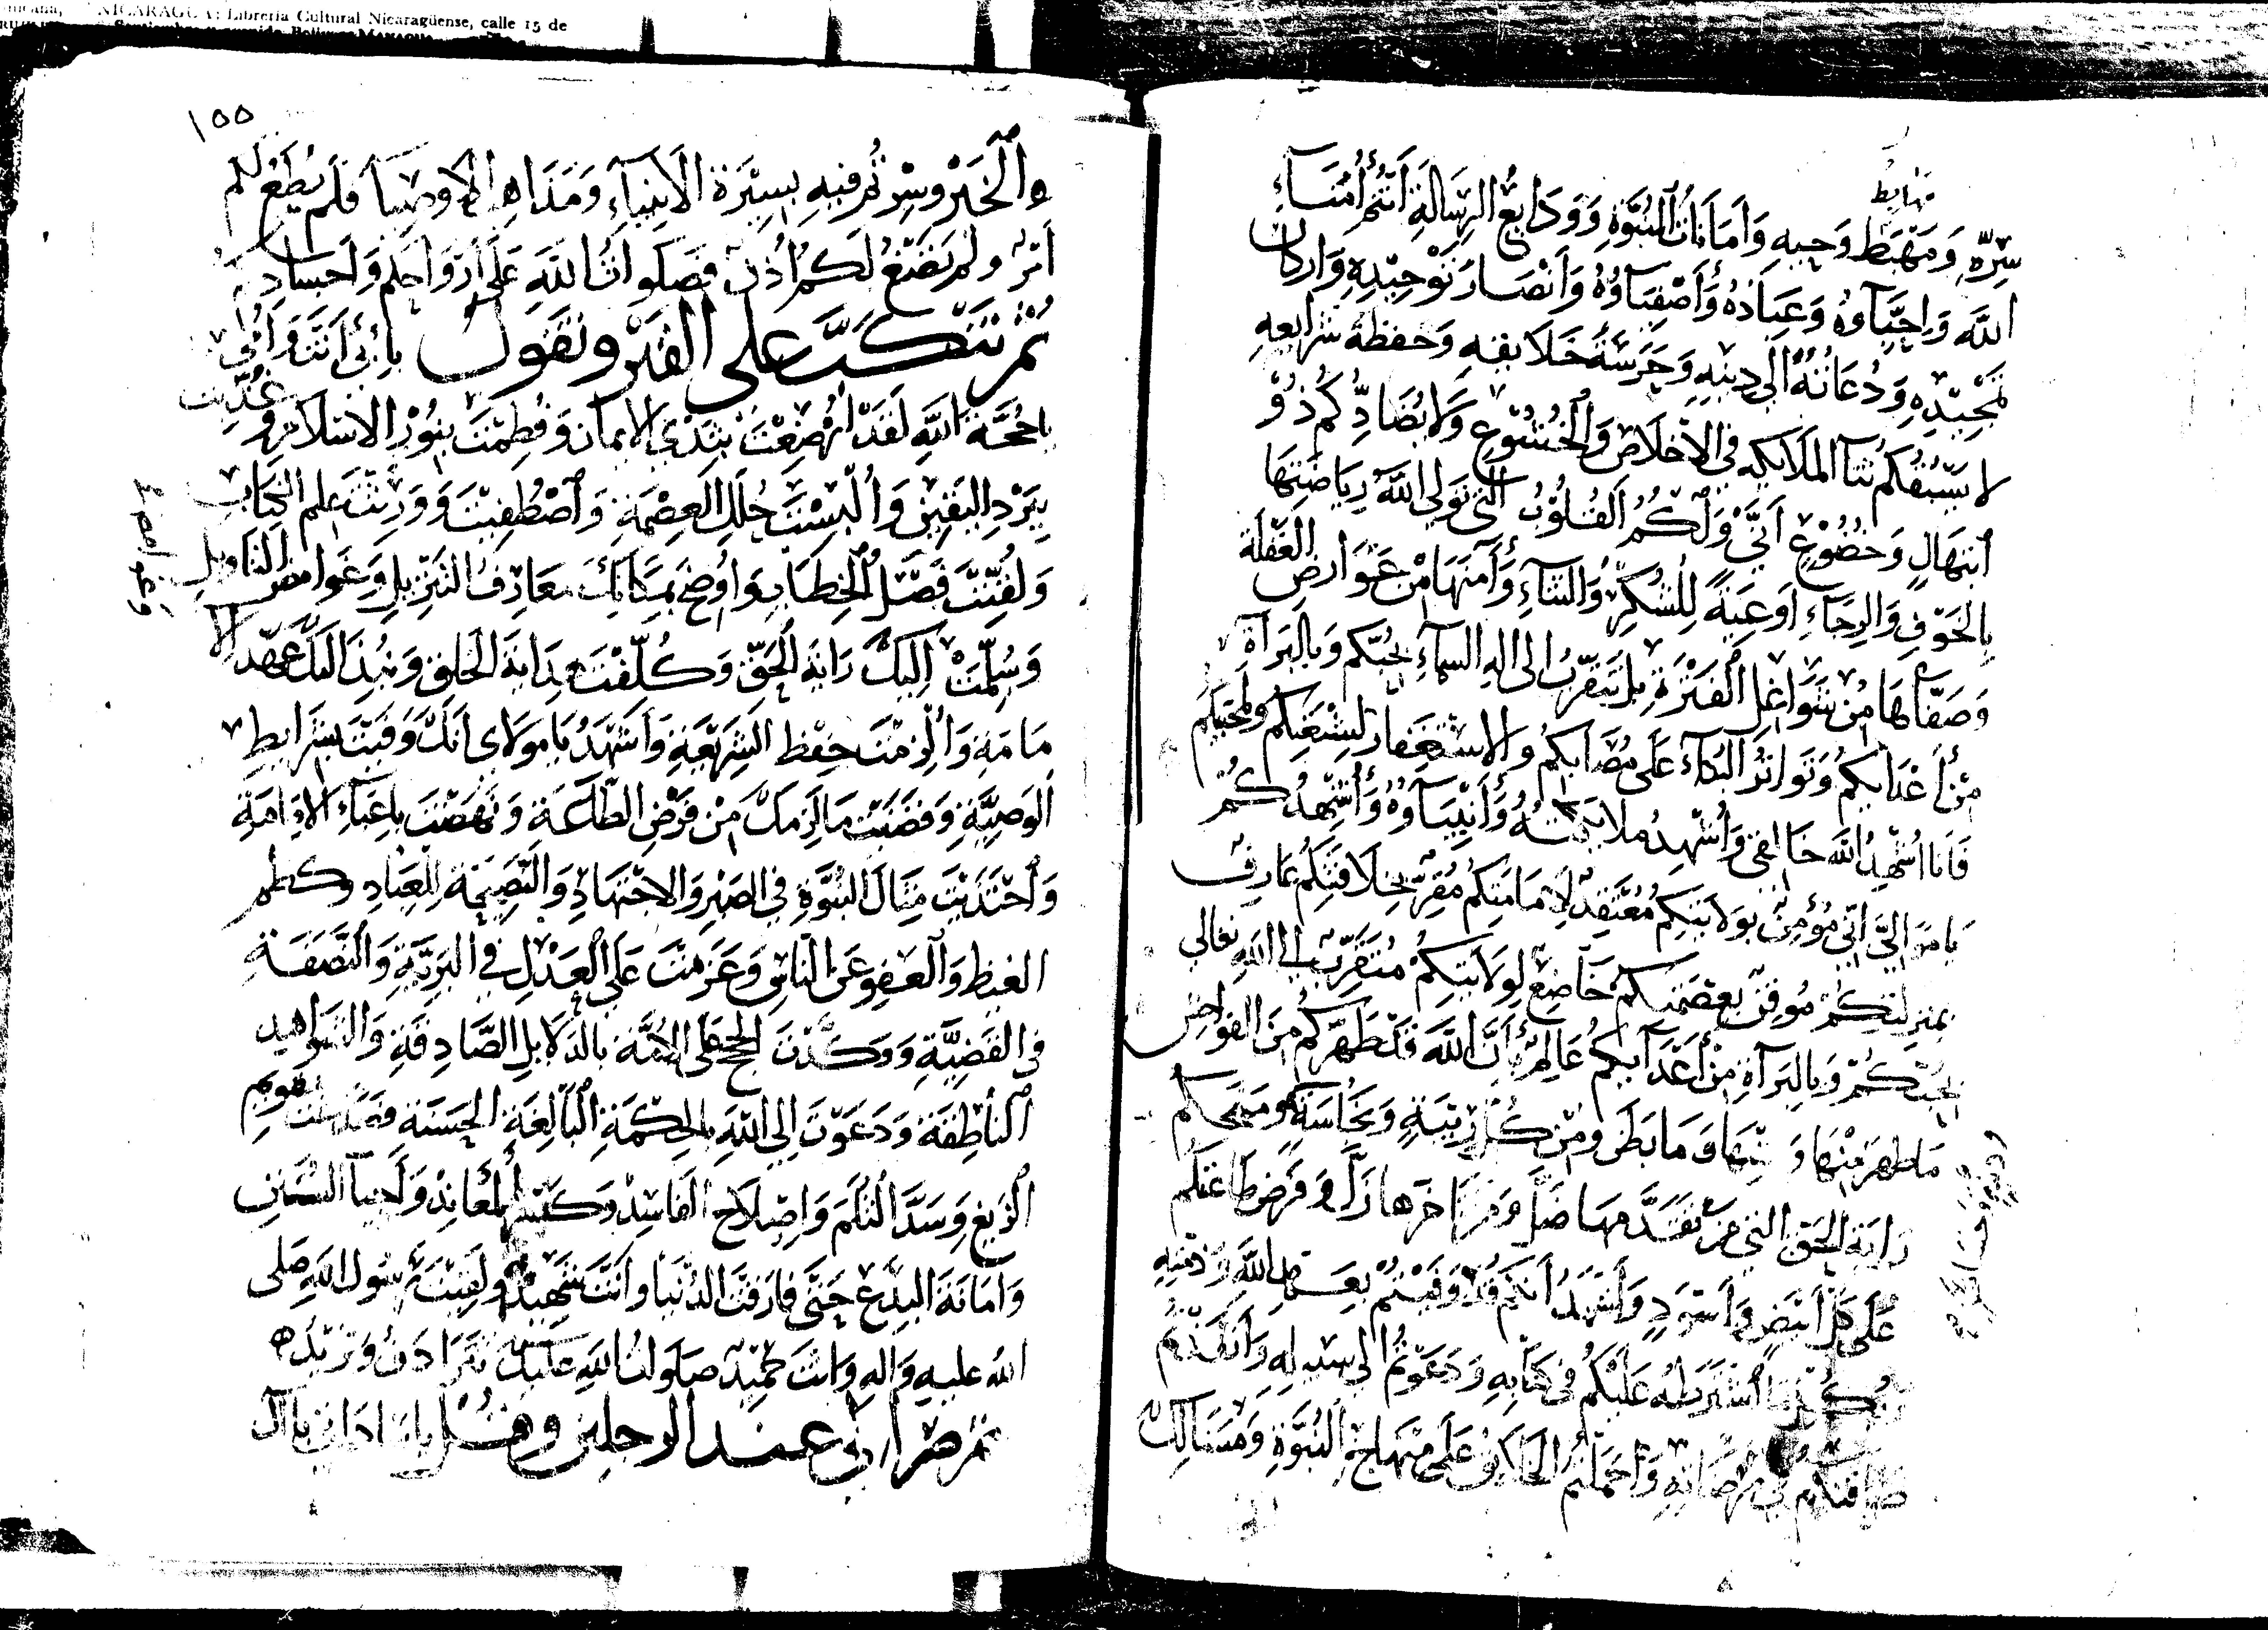 NICARAGUA: Librería Cultural Nicaragüense, calle 15 de
مهابط
سِرِّهِ وَمَهْبِط وَحيِهِ وَأمَانَاتُ النُّبُوَّةِ وَوَدَايِعُ الرِّسَالَةِ أنْتُمْ أُمَنَاءُ
اللهِ وَاحِبَّآوهُ وَعِبَادُهُ وَأَصْفِيَاؤُهُ وَأَنْصَارُ تَوْحِيْدِهِ وَاركان
تَمْجِيْدِهِ وَدُعَاتُهُ الى دِينِهِ وَحَرَسَةُ خَلَايِقِهِ وَحَفَظَةُ شرايعِهِ
لا يَسْبِقُكُم ثَنَآ الملَايكةِ في الاخلاصِ وَالخُشُوْعِ وَلَا يُضَادُّكُم ذُوْ
ابْتِهَالٍ وَخُضُوْعٍ أنّى وَلَكُمُ القُلُوْبُ التى تَولى اللهُ رِيَاضَتَهَا
بِالخَوْفِ وَالرَجَاءِ اوعِيَةً لِلشُكرِ وَالثنَاءِ وَأمنَهَا مِنْ عَوَارِضِ الغَفْلَة
وَصَفَّاهَا مِنْ شَوَاغِلِ الفَتْرَةِ بل يَتقَرَّبُ الى الهِ السماءِ بحُبّكم وَبالبَرآة
مِنْ أعْدَايكم وَتَواتُرُ البُكاءِ عَلى مُصَابِكُم والاستغفار لشِيْعَتِكم ولمحبّيكم
فَانا اُشْهِدُ اللهَ خَالقى وَأُشْهِدُ ملائكتَهُ وَأَنْبِيَآوهُ وَأُشْهِدُكُمْ
يَا مَوَالِيَّ انّى مُؤمِنٌ بوِلَايَتِكم مُعْتَقِد لاِمَامَتِكُم مُقِرٌّ بخِلَافَتِكُم عَارِف
بمنزِلَتكُمْ مُوقِنٌ بعِصْمَتكُم خَاضِعٌ لِوِلَايَتِكُم مُتَقَرِّبٌ الى اللهِ تعالى
بحُبّكُمْ وَبالبَرآةِ مِنْ أعْدَآيكُم عَالِمٌ بِأنَّ اللهَ قَد طَهَّرَكُم مِنَ الفَواحش
مَا ظهرَ مِنْهَا وَمَا بَطَنَ وَمِنْ كُلّ رِيبَةٍ وَنجَاسَةٍ وَمنَحَكم
رايَة الحَقِّ التى مَن تقدَّمهَا ضَلَّ وَمَن تاخّرَها زلَّ وفَرضَ طاعتَكُم
عَلَى كُلّ أبيَض وَأسْوَدٍ وَأشْهَدُ أنكُم قَدْ وَفَيْتُمْ بعَهْدِ اللهِ وَذمّتِهِ
وَبكُلّ مَا أشْتَرَطَه عَلَيْكُم في كتَابِهِ وَدَعَوْتُم الى سبيلهِ وَأنفَدْتُم
طاقتَكُم في مَرضَاتِهِ وَاحمَلتُم الخلَايِقَ عَلى مِنهَاجِ النُبُوَّةِ وَمسَالِكَ
١٥٥
الخَيْرِ وسِرْتُم فيهِ بسِيْرَة الانبياءِ وَمَذَاهِبِ الاوصِيآ فَلَم يُطَع لكُم
اَمْر ولم تُصْغَ لَكُمْ اُذن فصَلَوات اللهِ عَلى أرْوَاحكُم وَاَجْسادكم
ثم تنكبّ على القبر وتقول بأبي أنْتَ وَأمّي
يا حُجَّة اللهِ لَقَدْ ارضِعْتَ بثَدْي الايمان وَفُطِمْتَ بِنُوْرِ الاسْلام وَغُذِّيت
بِبَرْدِ اليَقِيْنِ وَأُلْبِسْتَ حُلَلَ العِصْمَةِ وَاُصْطُفِيْتَ وَوَرِثْتَ عِلم الكِتَابِ
وَلُقِّنْتَ فَصْلَ الخِطَابِ وَاُوْضِحَ بمكَانِكَ مَعَارِفُ التَنْزِيلِ وَغَوَامضُ التاويلِ
وَسُلِّمَتْ اِلَيْكَ رَايَة الحَقّ وَكُلِّفْتَ هِدَايَةَ الخَلقِ وَنُبِذَ اليكَ عَهْد الا
مَامَةِ وَاُلْزِمْتَ حِفْظ الشرِيْعَةِ وَأشْهَدُ يَا مولَاى أنَّكَ وَفَيْتَ بشَرَايطِ
الوَصِيَّةِ وَقضَيْتَ مَا لَزِمَكَ مِنْ فَرْضِ الطّاعَةِ وَنَهَضْتَ بأعْبَاءِ الامَامَةِ
وَاحْتَذَيْتَ مِثَالَ النُبُوَّةِ في الصَبْرِ وَالاجْتِهَادِ وَالنّصِيْحَةِ لِلعِبَادِ وكظم
الغيظ وَالعَفوِ عَنِ النّاسِ وَعَزمْتَ عَلى العَدْلِ في البَرِيَّةِ وَالنَّصَفَةِ
في القَضِيَّةِ وَوكّدْتَ الحُجَجَ على الامّة بالدَلايلِ الصَّادِقةِ وَالشَواهِدِ
النَاطِقَةِ وَدَعَوْتَ الى اللهِ بالحكْمَةِ البَالِغَةِ الحَسَنَة
الزَيغِ وَسَدَّ الثُلَمِ وَاِصْلَاح الفاسِدِ وَكَسْر المُعَانِدِ وَاَحيآ السُّنَن
وَامَاتَة البِدَعِ حَتّى فارَقْتَ الدُنْيا وَأنتَ شهِيْد ولقِيتَ رَسُول اللهِ صلى
الله عليهِ وَالهِ وَانتَ حَمِيْد صلَوات اللهِ عليكَ تترَادَف وتزيْد
ثم صر الى عند الرجلين وقل يا سادَاتى يا آل